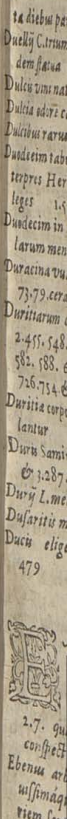 ta diebus pa
Duellij C. trium
dem statua
Dulcis vini nat
Dulcia odore ca
Dulcibus rarus
Duodecim tabu
terpres Her
leges 1.5
Duodecim in
larum men
Duracina vu
73.79. cera
Duritiarum
2.455. 548.
582. 588. 6
726.754 &
Duritia corpo
lantur
Duris Sami
& 3.287.
Durij L. me
Dusaritis m
Ducis elige
479
E
2.7. qu
conspect
Ebenus arb
uissimáq;
riem